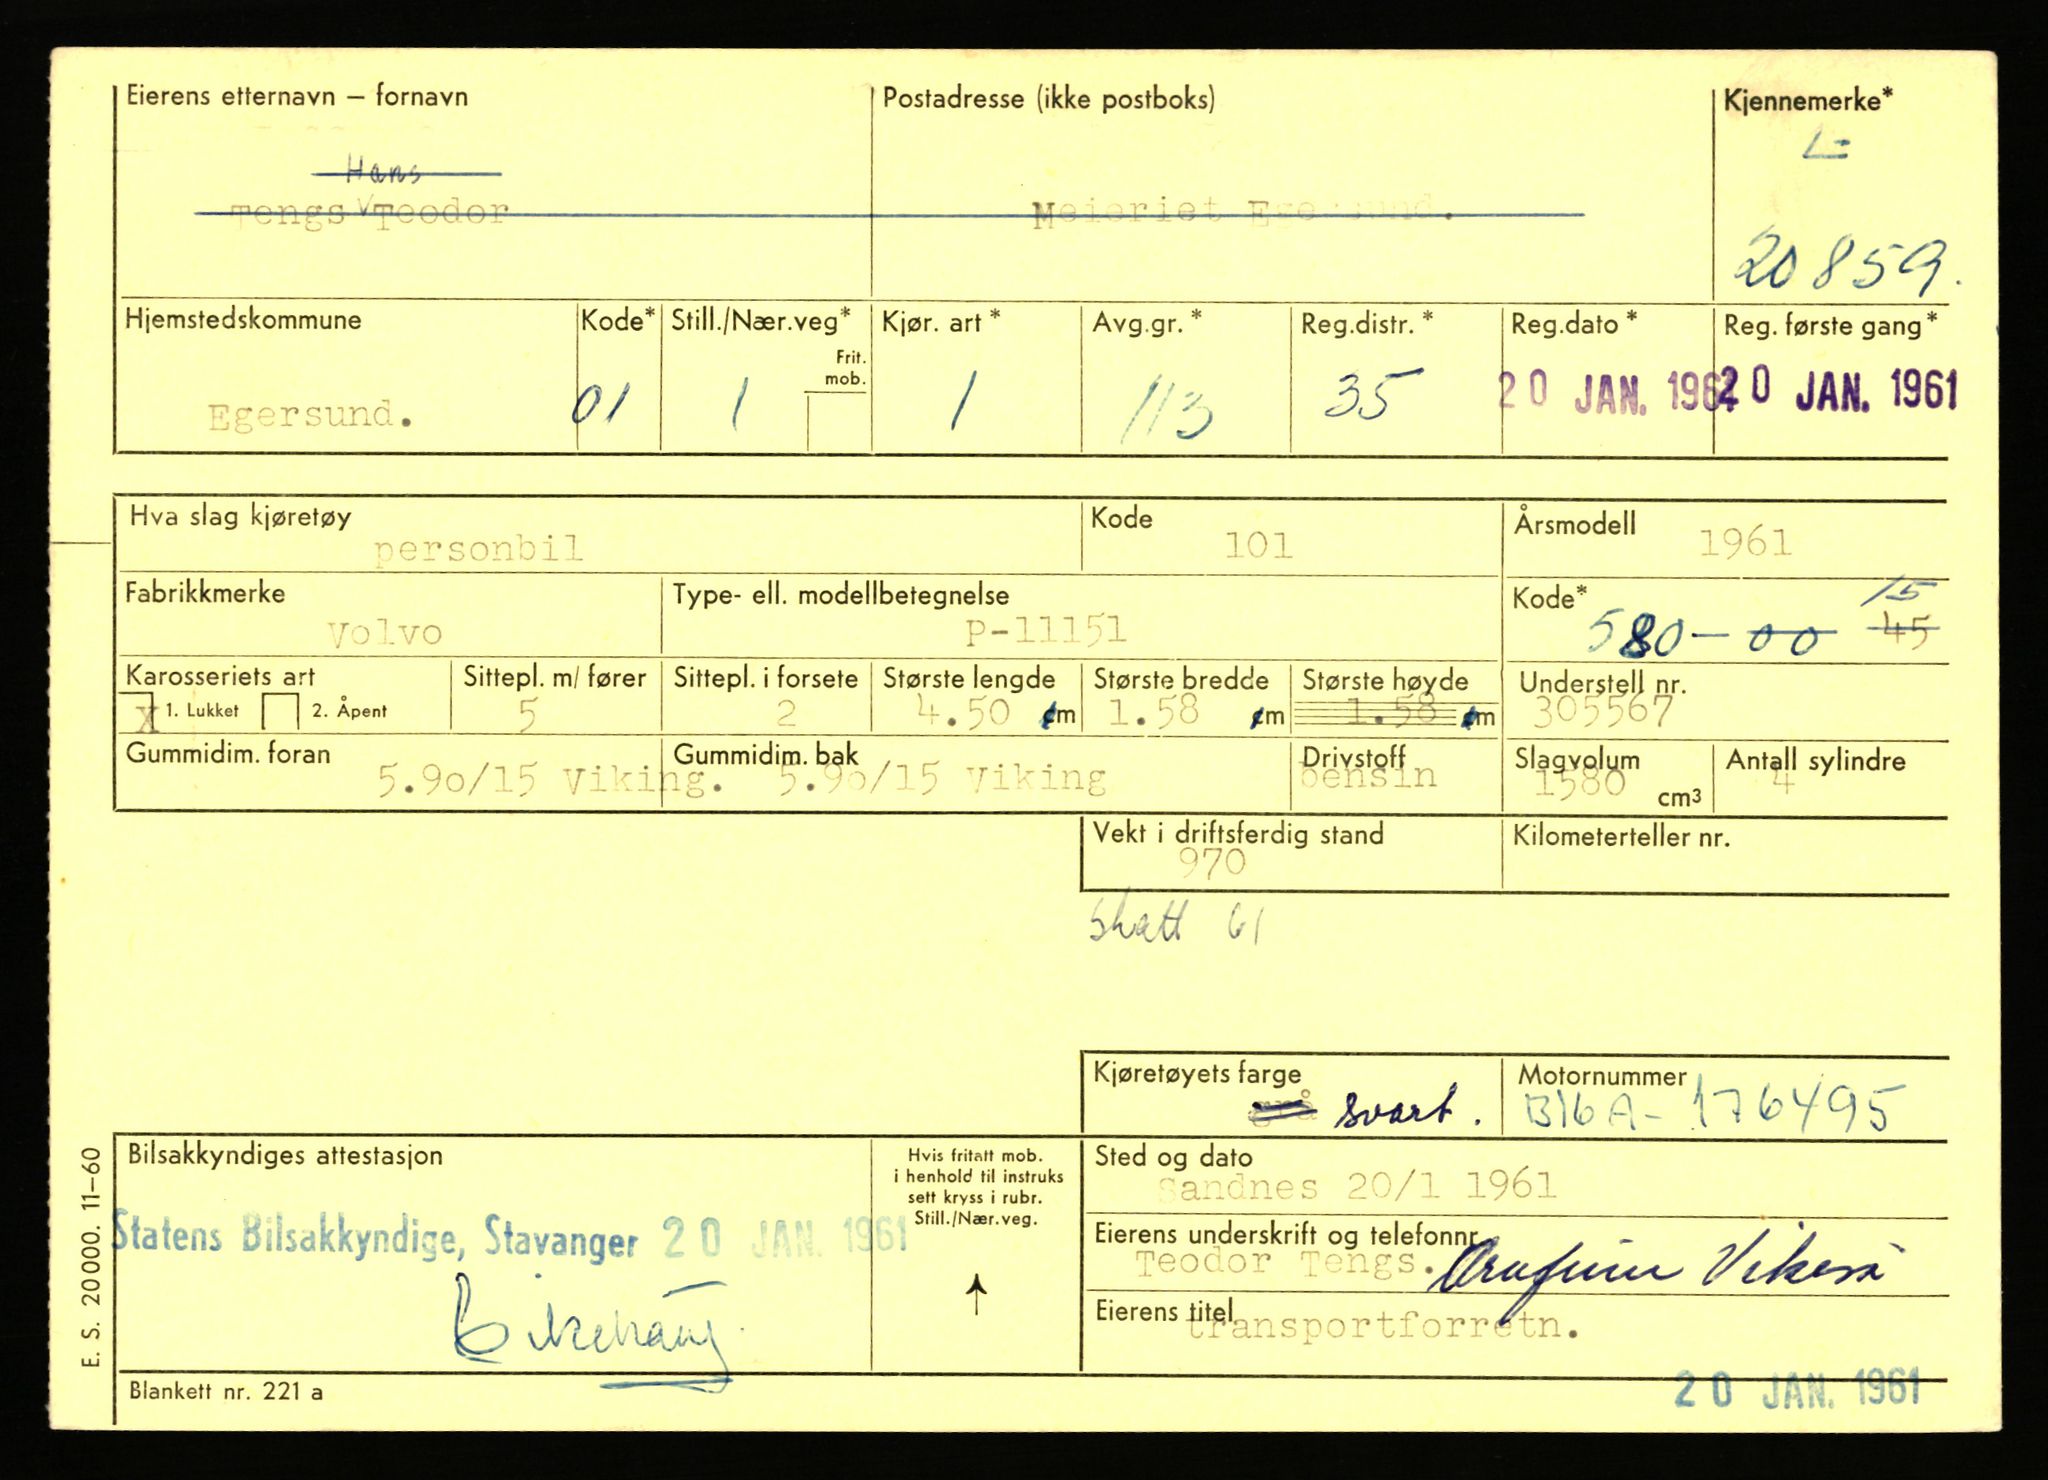 Eierens etternavn – fornavn Postadresse (ikke postboks) Kjennemerke*
L-
Hans
Tengs Teodor Meieriet Egersund.
20859.
Hjemstedskommune Kode* Still./Nær.veg* Kjør. art * Avg.gr. * Reg.distr. * Reg.dato * Reg. første gang *
Frit.
mob.
Egersund. 01 1 1 113 35 20 JAN. 1961 20 JAN. 1961
Hva slag kjøretøy Kode Årsmodell
personbil 101 1961
Fabrikkmerke Type- ell. modellbetegnelse Kode* 15
Volvo P-11151 580-00 45
Karosseriets art Sittepl. m/ fører Sittepl. i forsete Største lengde Største bredde Største høyde Understell nr.
X 1. Lukket 2. Åpent 5 2 4.50 cm 1.58 cm 1.58 cm 305567
Gummidim. foran Gummidim. bak Drivstoff Slagvolum Antall sylindre
5.9o/15 Viking. 5.9o/15 Viking bensin 1580 cm3 4
Vekt i driftsferdig stand Kilometerteller nr.
970
Skatt 61
Kjøretøyets farge Motornummer
grå svart. B16A-176495
Bilsakkyndiges attestasjon Hvis fritatt mob. i henhold til instruks sett kryss i rubr. Still./Nær.veg. Sted og dato
Sandnes 20/1 1961
Statens Bilsakkyndige, Stavanger 20 JAN. 1961
Eierens underskrift og telefonnr.
Teodor Tengs.
Eierens titel
transportforretn.
20 JAN. 1961
Blankett nr. 221 a
E. S. 20000. 11–60